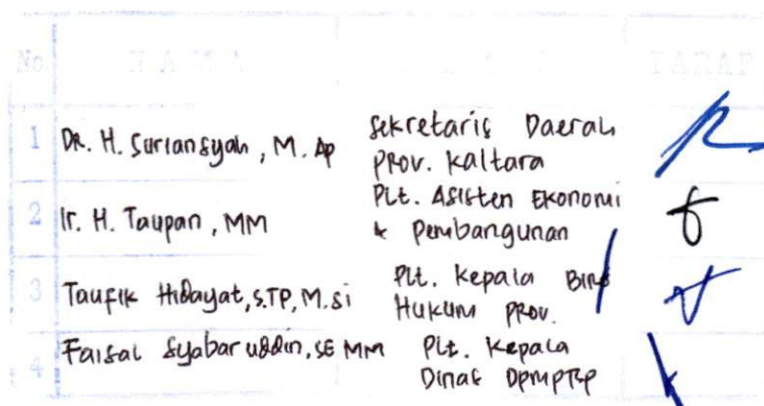 No NAMA PARAF
1 Dr. H. Suriansyah, M. Ap Sekretaris Daerah
Prov. Kaltara
2 Ir. H. Taupan, MM Plt. Asisten Ekonomi
& Pembangunan
3 Taufik Hidayat, S.TP, M.Si Plt. Kepala Biro
Hukum Prov.
4 Faisal Syabaruddin, SE MM Plt. Kepala
Dinas DPMPTSP